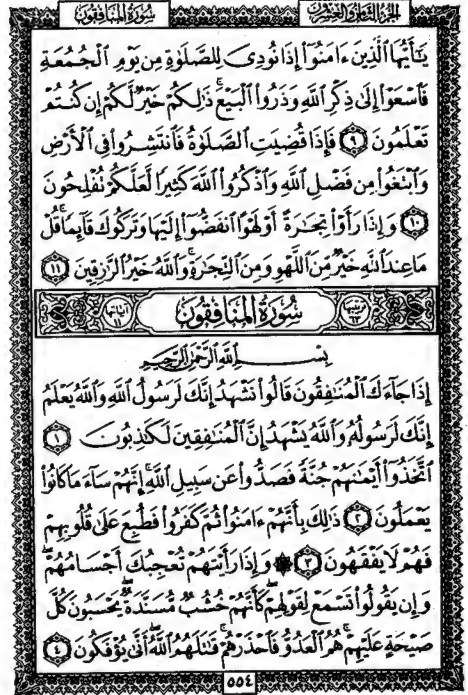 سُورَةُ المُنَافِقُون الجُزْءُ الثَّامِنُ وَالعِشْرُونَ
يَٰٓأَيُّهَا ٱلَّذِينَ ءَامَنُوٓا۟ إِذَا نُودِىَ لِلصَّلَوٰةِ مِن يَوْمِ ٱلْجُمُعَةِ
فَٱسْعَوْا۟ إِلَىٰ ذِكْرِ ٱللَّهِ وَذَرُوا۟ ٱلْبَيْعَ ۚ ذَٰلِكُمْ خَيْرٌ لَّكُمْ إِن كُنتُمْ
تَعْلَمُونَ ٩ فَإِذَا قُضِيَتِ ٱلصَّلَوٰةُ فَٱنتَشِرُوا۟ فِى ٱلْأَرْضِ
وَٱبْتَغُوا۟ مِن فَضْلِ ٱللَّهِ وَٱذْكُرُوا۟ ٱللَّهَ كَثِيرًا لَّعَلَّكُمْ تُفْلِحُونَ
١٠ وَإِذَا رَأَوْا۟ تِجَٰرَةً أَوْ لَهْوًا ٱنفَضُّوٓا۟ إِلَيْهَا وَتَرَكُوكَ قَآئِمًا ۚ قُلْ
مَا عِندَ ٱللَّهِ خَيْرٌ مِّنَ ٱللَّهْوِ وَمِنَ ٱلتِّجَٰرَةِ ۚ وَٱللَّهُ خَيْرُ ٱلرَّٰزِقِينَ ١١
ترتيبها ٦٣ سُورَةُ المُنَافِقُون آياتها ١١
بِسْمِ ٱللَّهِ ٱلرَّحْمَٰنِ ٱلرَّحِيمِ
إِذَا جَآءَكَ ٱلْمُنَٰفِقُونَ قَالُوا۟ نَشْهَدُ إِنَّكَ لَرَسُولُ ٱللَّهِ ۗ وَٱللَّهُ يَعْلَمُ
إِنَّكَ لَرَسُولُهُۥ وَٱللَّهُ يَشْهَدُ إِنَّ ٱلْمُنَٰفِقِينَ لَكَٰذِبُونَ ١
ٱتَّخَذُوٓا۟ أَيْمَٰنَهُمْ جُنَّةً فَصَدُّوا۟ عَن سَبِيلِ ٱللَّهِ ۚ إِنَّهُمْ سَآءَ مَا كَانُوا۟
يَعْمَلُونَ ٢ ذَٰلِكَ بِأَنَّهُمْ ءَامَنُوا۟ ثُمَّ كَفَرُوا۟ فَطُبِعَ عَلَىٰ قُلُوبِهِمْ
فَهُمْ لَا يَفْقَهُونَ ٣ ۞ وَإِذَا رَأَيْتَهُمْ تُعْجِبُكَ أَجْسَامُهُمْ ۖ
وَإِن يَقُولُوا۟ تَسْمَعْ لِقَوْلِهِمْ ۖ كَأَنَّهُمْ خُشُبٌ مُّسَنَّدَةٌ ۖ يَحْسَبُونَ كُلَّ
صَيْحَةٍ عَلَيْهِمْ ۚ هُمُ ٱلْعَدُوُّ فَٱحْذَرْهُمْ ۚ قَٰتَلَهُمُ ٱللَّهُ ۖ أَنَّىٰ يُؤْفَكُونَ ٤
٥٥٤